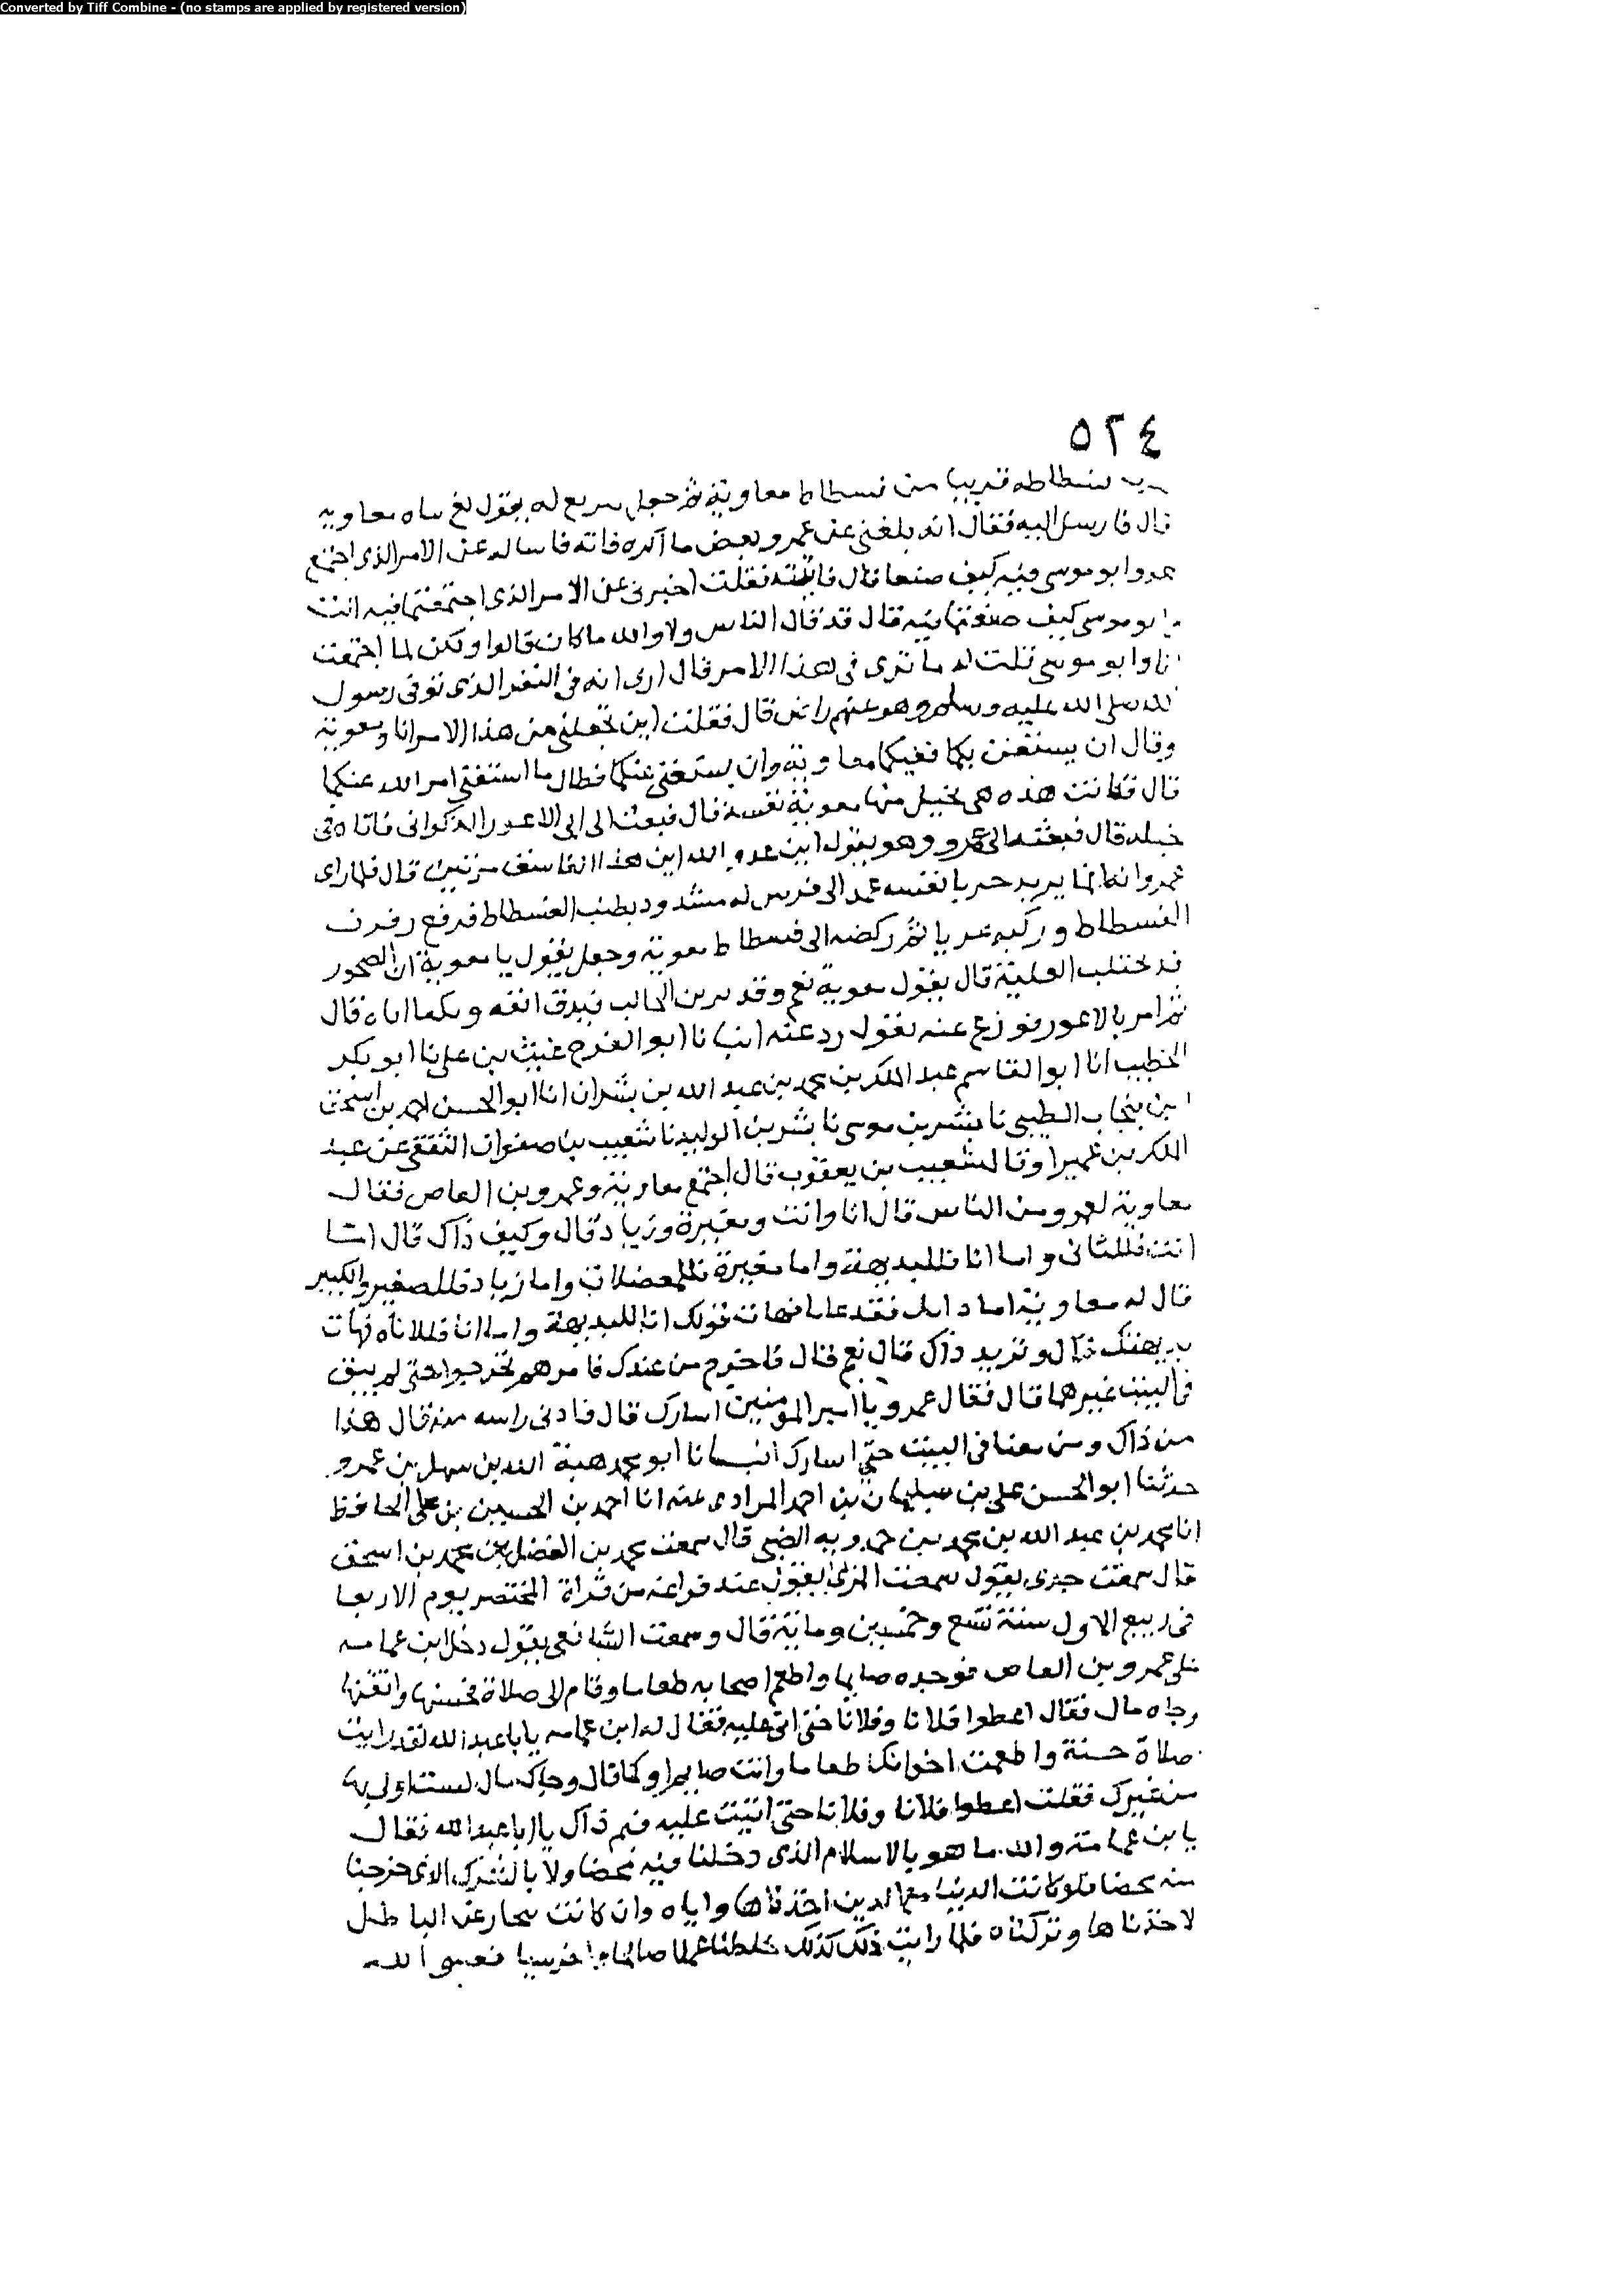 Converted by Tiff Combine - (no stamps are applied by registered version)
٥٢٤
فسطاطه قريبا من فسطاط معاوية ثم جعل يقول معاويه
قال فارسل اليه فقال انه بلغنى عن عمرو بعض ما اكره فاته فاساله عن الامر الذى اجتمع
عمرو ابو موسى فيه كيف صنعا قال فاتيته فقلت اخبرنى عن الامر الذى اجتمعتما فيه انت
ابو موسى كيف صنعتما فيه قال قد قال الناس ولا والله ما كان قالوا ولكن لما اجتمعت
انا وابو موسى قلت له ما ترى فى هذا الامر قال ارى انه فى النفر الذى توفى رسول
الله صلى الله عليه وسلم وهو عنهم راض قال فقلت اين تجعلنى من هذا الامر انا ومعوية
وقال ان يستعن بكما ففيكما معاونة وان يستغنى عنكما فطال ما استغنى امر الله عنكما
قال فكانت هذه هى منها معوية نفسه قال فبعث الى ابى الاعور الذكوانى فاتاه فى
خيله قال فبعثه الى عمرو وهو يقول اين عدو الله اين هذا الفاسق مرتين قال فلما راى
عمرو انه انما يريد نفسه عمد الى فرس له مشدود بطنب الفسطاط
الفسطاط وركبه عريا ثم ركضه الى فسطاط معوية وجعل يقول يا معوية ان الضجور
قد تحتلب العلبة قال يقول معوية نعم وقد الحالب فيدق انفه ويكفا اناه قال
ثم امر بالاعور فوزع عنه يقول رد عنه انبانا ابو الفرج غيث بن على نا ابو بكر
الخطيب انا ابو القاسم عبد الملك بن محمد بن عبد الله بن بشران انا ابو الحسن احمد بن اسحق
ابن ينجاب الطيبى نا بشر بن موسى نا بشر بن الوليد نا شعيب بن صفوان الثقفى عن عبد
الملك بن عمير او قال شعيب بن يعقوب قال اجتمع معاوية وعمرو بن العاص فقال
معاوية لعمرو من الناس قال انا وانت ومغيرة وزياد قال وكيف ذاك قال اما
انت فللتانى واما انا فللبديهة واما مغيرة فللمعضلات واما زياد فللصغير والكبير
قال له معاوية اما فقد غابا فهات قولك انا للبديهة واما انا فللاناه فهات
بديهتك قال وتريد ذاك قال نعم قال فاخرج من عندك فامرهم فخرجوا حتى لم يبق
فى البيت غيرهما قال فقال عمرو يا امير المومنين اسارك قال فادنى راسه منه قال هذا
من ذاك ومن معنا فى البيت حتى اسارك انبانا ابو محمد هبة الله بن سهل بن عمرو
حدثنا ابو الحسن على بن سليمان بن احمد المرادى عنه انا احمد بن الحسين بن على الحافظ
انا محمد بن عبد الله بن محمد بن حمدويه الضبى قال سمعت محمد بن الفضل بن محمد بن اسحق
قال سمعت جدى يقول سمعت المزنى يقول عند فراغه من قراة المختصر يوم الاربعا
فى ربيع الاول سنة تسع وخمسين ومائة قال وسمعت الشافعى يقول دخل ابن عباس
على عمرو بن العاص فوجده صايما واطعم اصحابه طعاما وقام الى صلاة فحسنها واتقنها
وجاه مال فقال اعطوا فلانا وفلانا حتى اتى عليه فقال له ابن عباس يا ابا عبد الله لقد رايت
صلاة حسنة واطعمت اخوانك طعاما وانت صايما او كما قال وجاك مال لست اولى به
من غيرك فقلت اعطوا فلانا وفلانا حتى اتيت عليه فمم ذاك يا ابا عبد الله فقال
يا بن عباس والله ما هو بالاسلام الذى دخلنا فيه محضا ولا بالشرك الذى خرجنا
منه محضا فلو كانت الدنيا مع الدين اخذناها واياه وان كانت عن الباطل
لاخذناها وتركناه فلما رايت ذلك كذلك خلطنا عملا صالحا واخر سيا فعسى الله